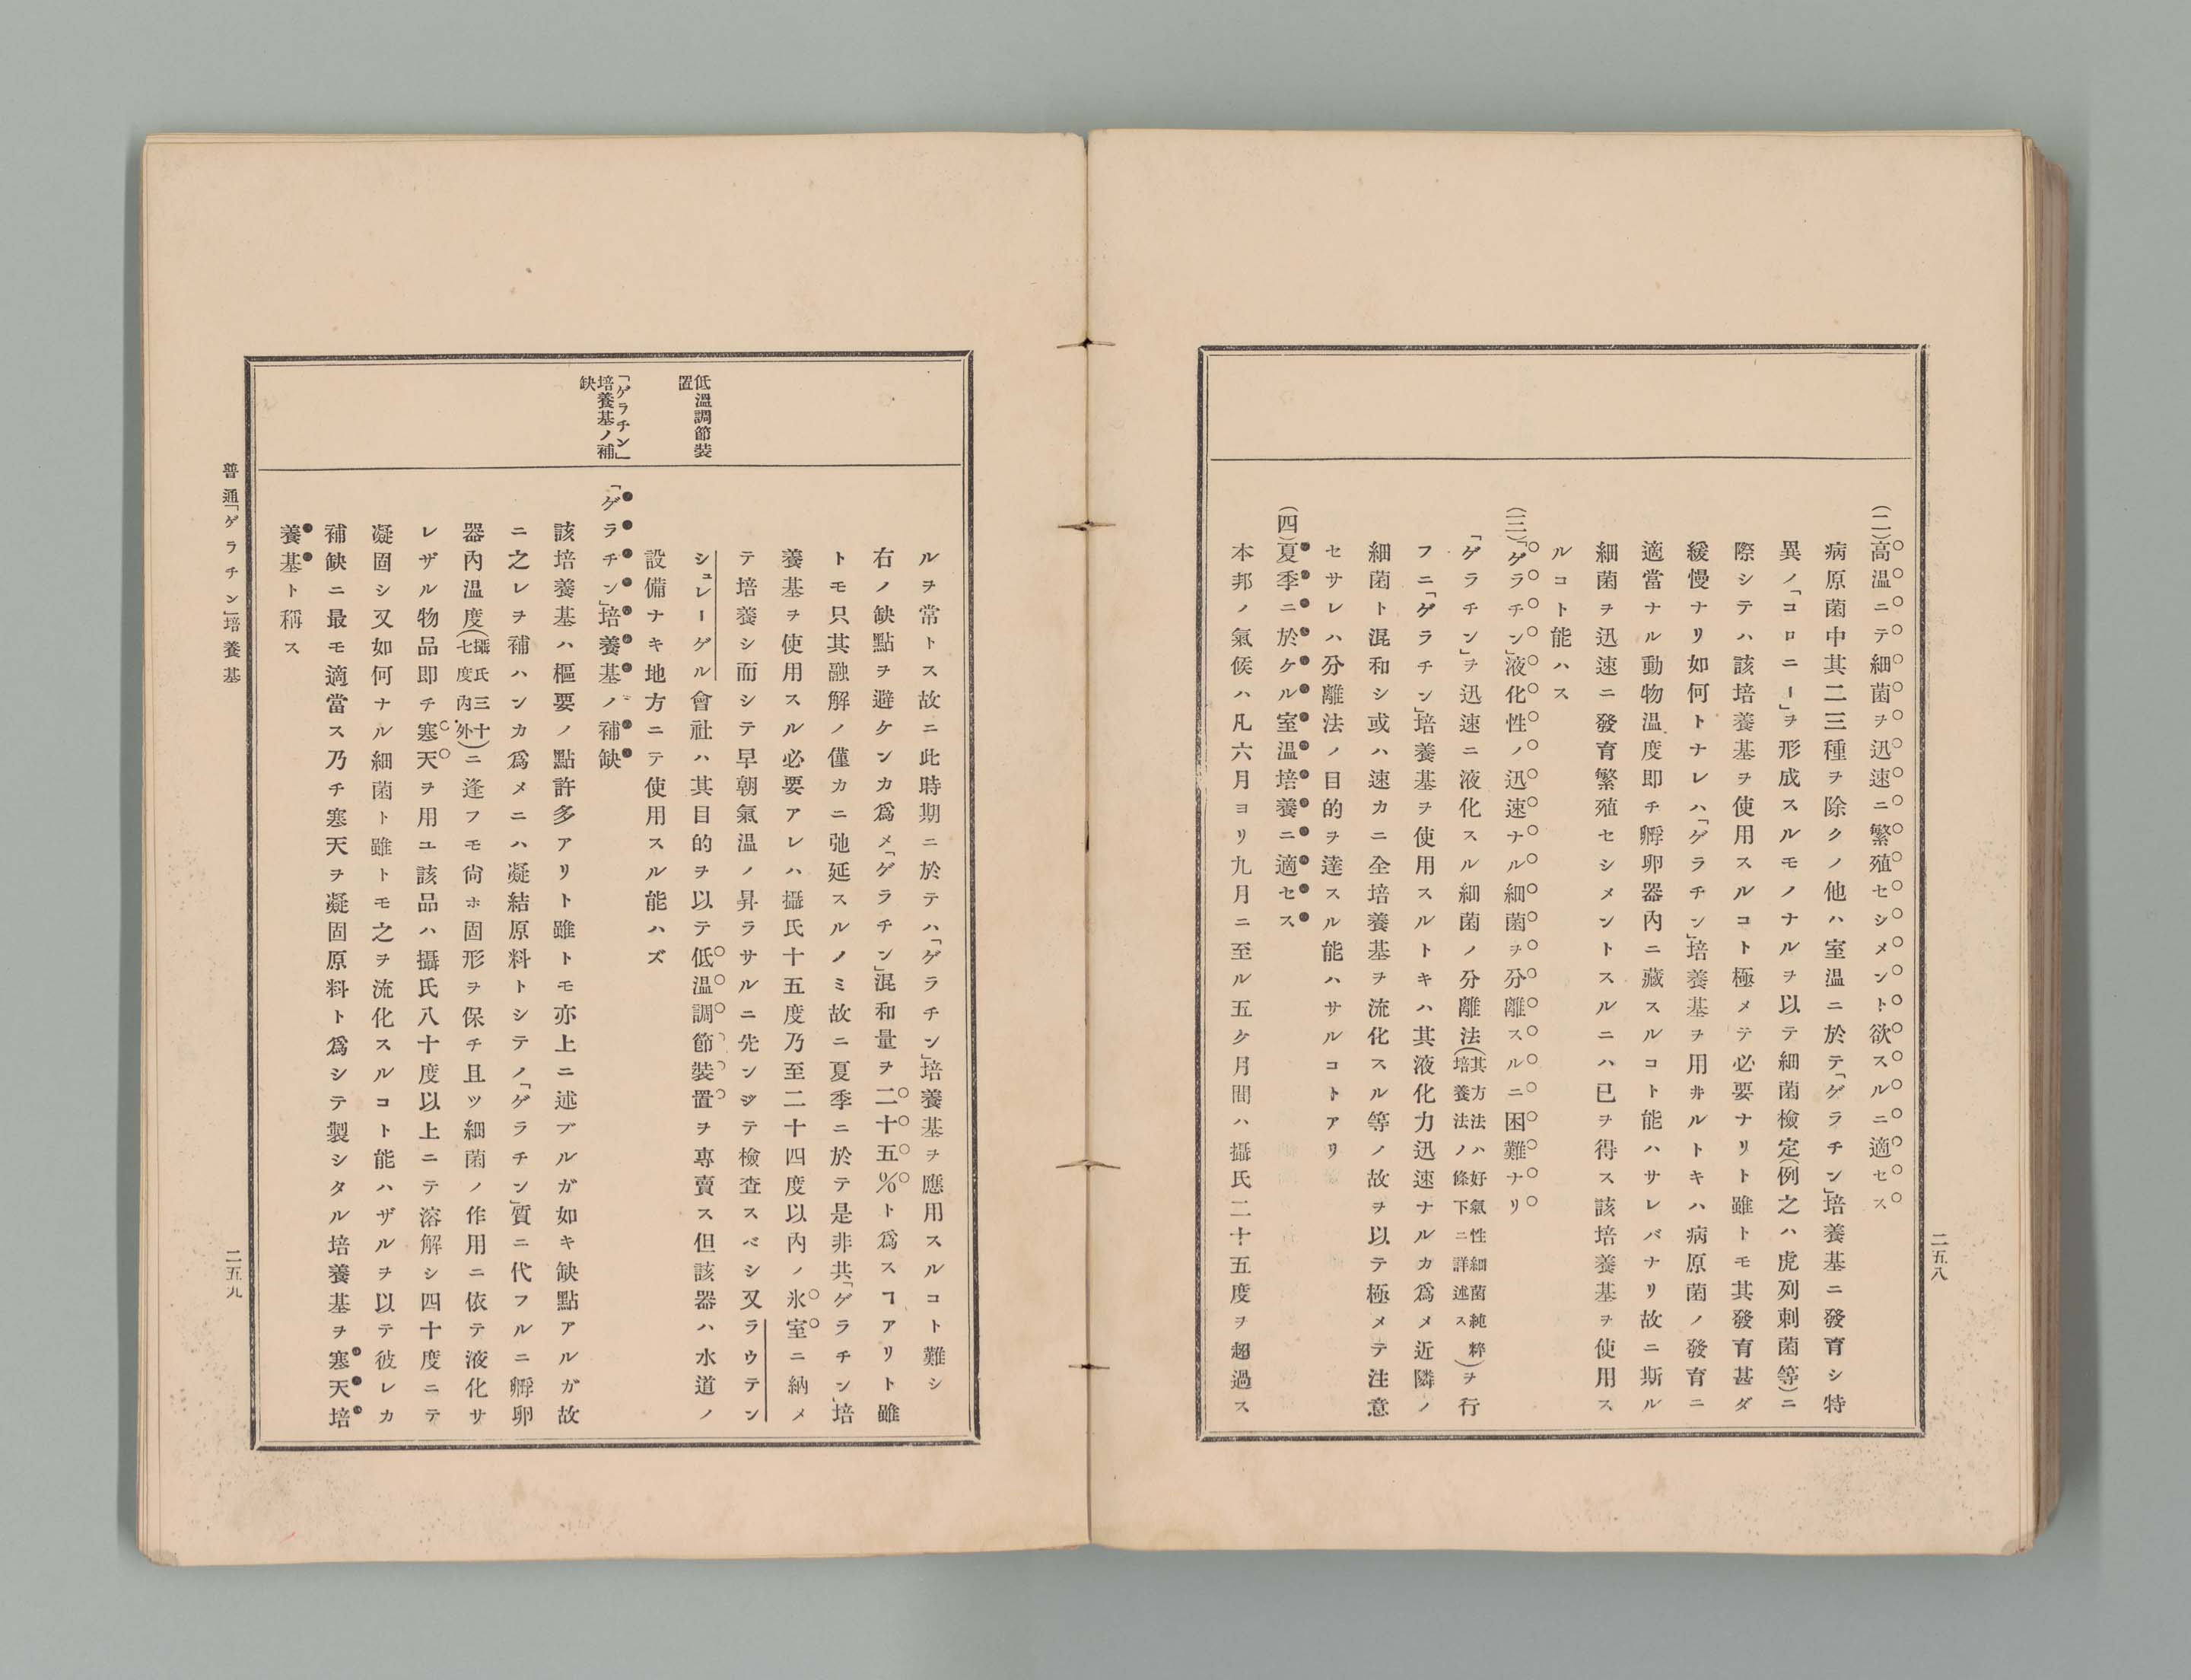 二五八
(二)高温ニテ細菌ヲ迅速ニ繁殖セシメント欲スルニ適セス
病原菌中其二三種ヲ除クノ他ハ室温ニ於テ「ゲラチン」培養基ニ發育シ特
異ノ「コロニー」ヲ形成スルモノナルヲ以テ細菌檢定(例之ハ虎列刺菌等)ニ
際シテハ該培養基ヲ使用スルコト極メテ必要ナリト雖トモ其發育甚ダ
緩慢ナリ如何トナレハ「ゲラチン」培養基ヲ用井ルトキハ病原菌ノ發育ニ
適當ナル動物温度即チ孵卵器內ニ藏スルコト能ハサレバナリ故ニ斯ル
細菌ヲ迅速ニ發育繁殖セシメントスルニハ已ヲ得ス該培養基ヲ使用ス
ルコト能ハス
(三)「ゲラチン」液化性ノ迅速ナル細菌ヲ分離スルニ困難ナリ
「ゲラチン」ヲ迅速ニ液化スル細菌ノ分離法(其方法ハ好氣性細菌純粹培養法ノ條下ニ詳述ス)ヲ行
フニ「ゲラチン」培養基ヲ使用スルトキハ其液化力迅速ナルカ爲メ近隣ノ
細菌ト混和シ或ハ速カニ全培養基ヲ流化スル等ノ故ヲ以テ極メテ注意
セサレハ分離法ノ目的ヲ達スル能ハサルコトアリ
(四)夏季ニ於ケル室温培養ニ適セス
本邦ノ氣候ハ凡六月ヨリ九月ニ至ル五ケ月間ハ攝氏二十五度ヲ超過ス
ルヲ常トス故ニ此時期ニ於テハ「ゲラチン」培養基ヲ應用スルコト難シ
右ノ缺點ヲ避ケンカ爲メ「ゲラチン」混和量ヲ二十五%ト爲スヿアリト雖
トモ只其融解ノ僅カニ弛延スルノミ故ニ夏季ニ於テ是非共「ゲラチン」培
養基ヲ使用スル必要アレハ攝氏十五度乃至二十四度以內ノ氷室ニ納メ
テ培養シ而シテ早朝氣温ノ昇ラサルニ先ンジテ檢査スベシ又ラウテン
シュレーゲル會社ハ其目的ヲ以テ低温調節裝置ヲ專賣ス但該器ハ水道ノ
設備ナキ地方ニテ使用スル能ハズ
低溫調節裝
置
「ゲラチン」培養基ノ補缺
「ゲラチン」
培養基ノ補
缺
該培養基ハ樞要ノ點許多アリト雖トモ亦上ニ述ブルガ如キ缺點アルガ故
ニ之レヲ補ハンカ爲メニハ凝結原料トシテノ「ゲラチン」質ニ代フルニ孵卵
器內温度(攝氏三十七度內外)ニ逢フモ尙ホ固形ヲ保チ且ツ細菌ノ作用ニ依テ液化サ
レザル物品即チ寒天ヲ用ユ該品ハ攝氏八十度以上ニテ溶解シ四十度ニテ
凝固シ又如何ナル細菌ト雖トモ之ヲ流化スルコト能ハザルヲ以テ彼レカ
補缺ニ最モ適當ス乃チ寒天ヲ凝固原料ト爲シテ製シタル培養基ヲ寒天培
養基ト稱ス
普通「ゲラチン」培養基
二五九